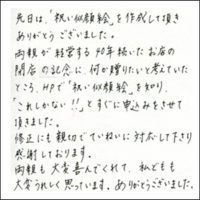 先日は、「祝い似顔絵」を作成して頂き
ありがとうございました。
両親が経営する40年続いたお店の
閉店の記念に、何か贈りたいと考えていた
ところ、HPで「祝い似顔絵」を知り、
「これしかない!!」とすぐに申込みをさせて
頂きました。
修正にも親切でていねいに対応して下さり
感謝しております。
両親も大変喜んでくれて、私どもも
大変うれしく思っています。ありがとうございました。